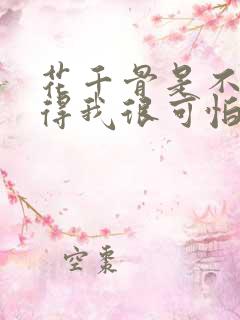 花千骨是不
得我很可怕
空枣